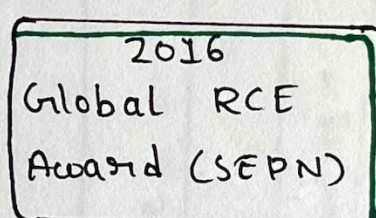 2016
Global RCE
Award (SEPN)